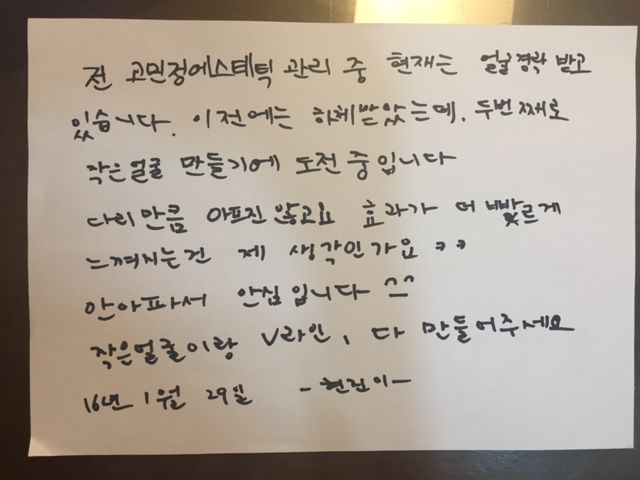 전 고민정에스테틱 관리 중 현재는 얼굴경락 받고
있습니다. 이전에는 하체받았는데, 두번째로
작은얼굴 만들기에 도전중입니다
다리만큼 아프진 않고요 효과가 더 빠르게
느껴지는건 제 생각인가요 ㅋㅋ
안아파서 안심입니다 ^^
작은얼굴이랑 V라인, 다 만들어주세요
16년 1월 29일